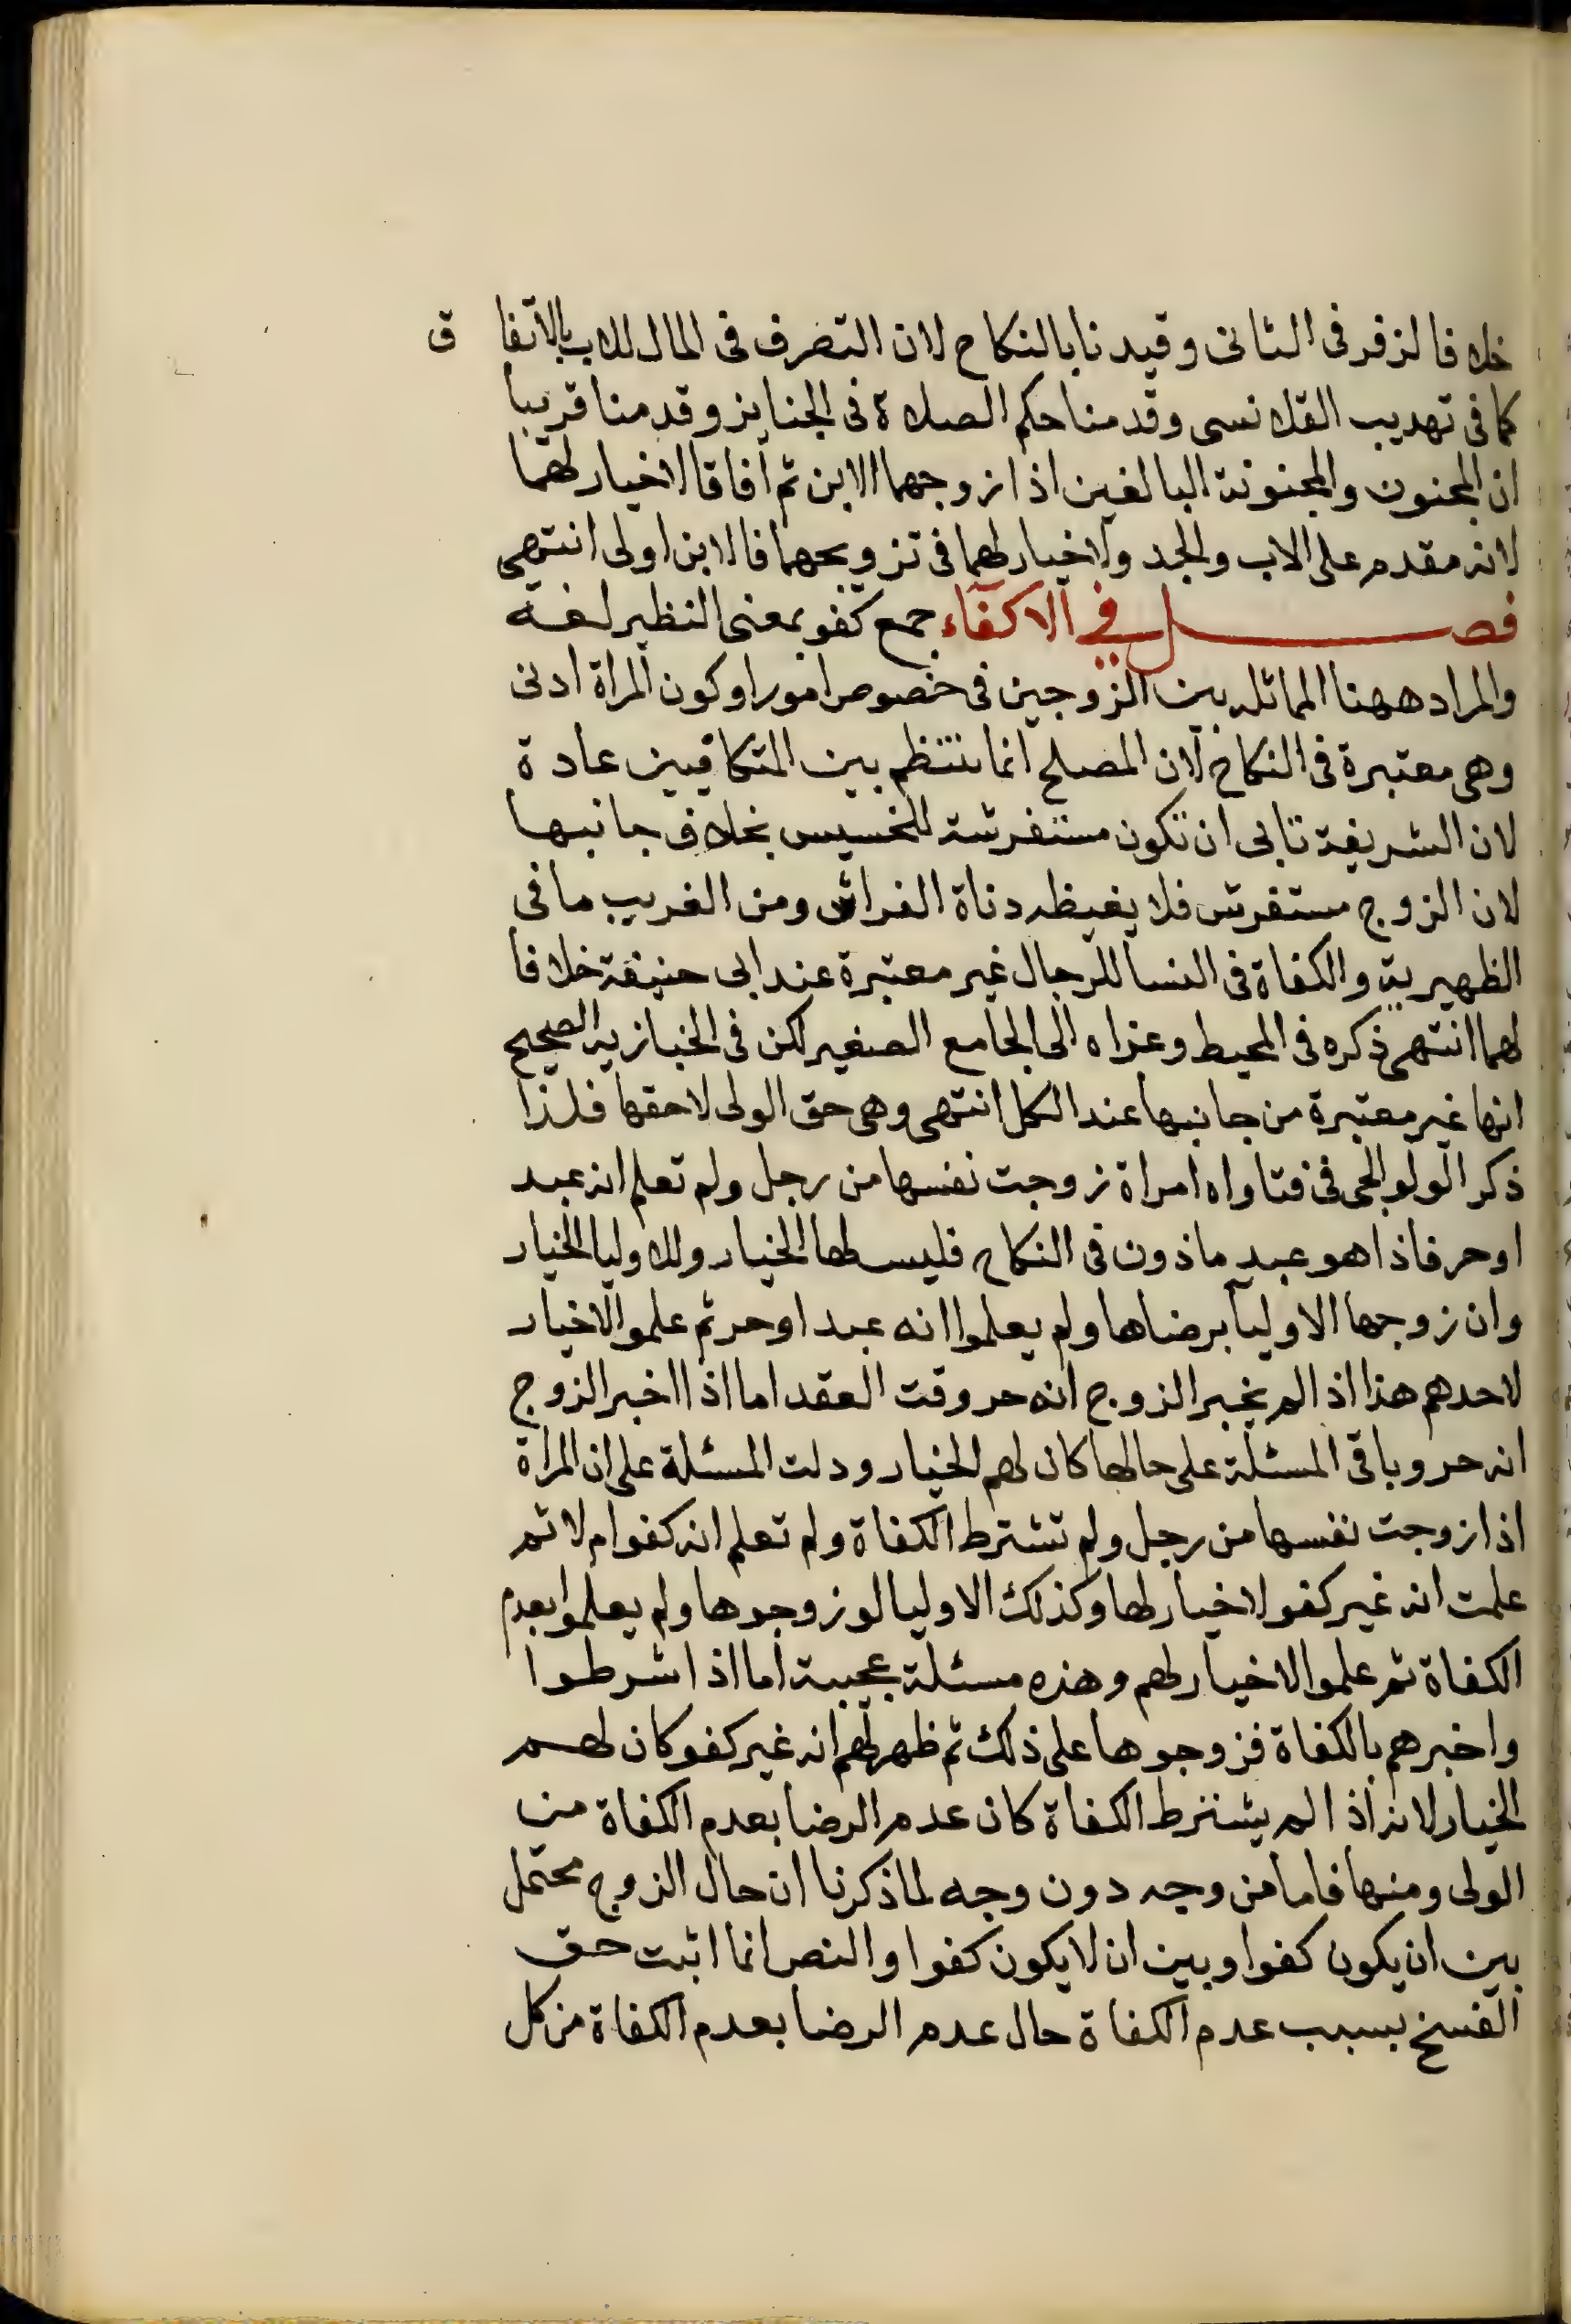 خلافا لزفر فى الثانى وقيدنا بالنكاح لان التصرف فى المال للاب بالاتفا ق
كما فى تهديب القلانسى وقدمنا حكم الصلاة فى الجنايز وقدمنا قريبا
ان المجنون والمجنونة البالغين اذا زوجهما الابن ثم افاقا لا خيار لهما
لانه مقدم على الاب والجد ولا خيار لهما فى تزويجهما فالابن اولى انتهى
فصل في الاكفآء جمع كفو بمعنى النظير لغة
والمراد ههنا المماثله بين الزوجين فى خصوص امور او كون المراة ادنى
وهى معتبرة فى النكاح لان المصلح انما تنتظم بين المتكافيين عادة
لان الشريفة تابى ان تكون مستفرشة للخسيس بخلاف جانبها
لان الزوج مستفرش فلا يغيظه دناة الفراش ومن الغريب ما فى
الظهيرية والكفاة فى النسا للرجال غير معتبرة عند ابى حنيفة خلافا
لهما انتهى ذكره فى المحيط وعزاه الى الجامع الصغير لكن فى الخبازيه الصحيح
انها غير معتبرة من جانبها عند الكل انتهى وهى حق الولى لا حقها فلذا
ذكر الولوالجى فى فتاواه امراة زوجت نفسها من رجل ولم تعلم انه عبد
او حر فاذا هو عبد ماذون فى النكاح فليس لها الخيار وللاوليا الخيار
وان زوجها الاوليآ برضاها ولم يعلموا انه عبد او حر ثم علموا لا خيار
لاحدهم هذا اذا لم يخبر الزوج انه حر وقت العقد اما اذا اخبر الزوج
انه حر وباقى المسئلة على حالها كان لهم الخيار ودلت المسئلة على ان المراة
اذا زوجت نفسها من رجل ولم تشترط الكفاة ولم تعلم انه كفو ام لا ثم
علمت انه غير كفو لا خيار لها وكذلك الاوليا لو زوجوها ولم يعلموا بعدم
الكفاة ثم علموا لا خيار لهم وهذه مسئلة عجيبة اما اذا شرطوا
واخبرهم بالكفاة فزوجوها على ذلك ثم ظهر لهم انه غير كفو كان لهم
الخيار لانه اذا لم يشترط الكفاة كان عدم الرضا بعدم الكفاة من
الولى ومنها فاما من وجه دون وجه لما ذكرنا ان حال الزوج محتمل
بين ان يكون كفوا وبين ان لا يكون كفوا والنص انما اثبت حق
الفسخ بسبب عدم الكفاة حال عدم الرضا بعدم الكفاة من كل